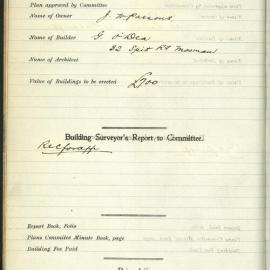 Plan approved by Committee
Name of Owner J McParsons
Name of Builder G. O'Dea
22 Spit Rd Mosman
Name of Architect
Value of Buildings to be erected £900
Building Surveyor's Report to Committee.
Rec for app
Report Book, Folio
Plans Committee Minute Book, page
Building Fee Paid